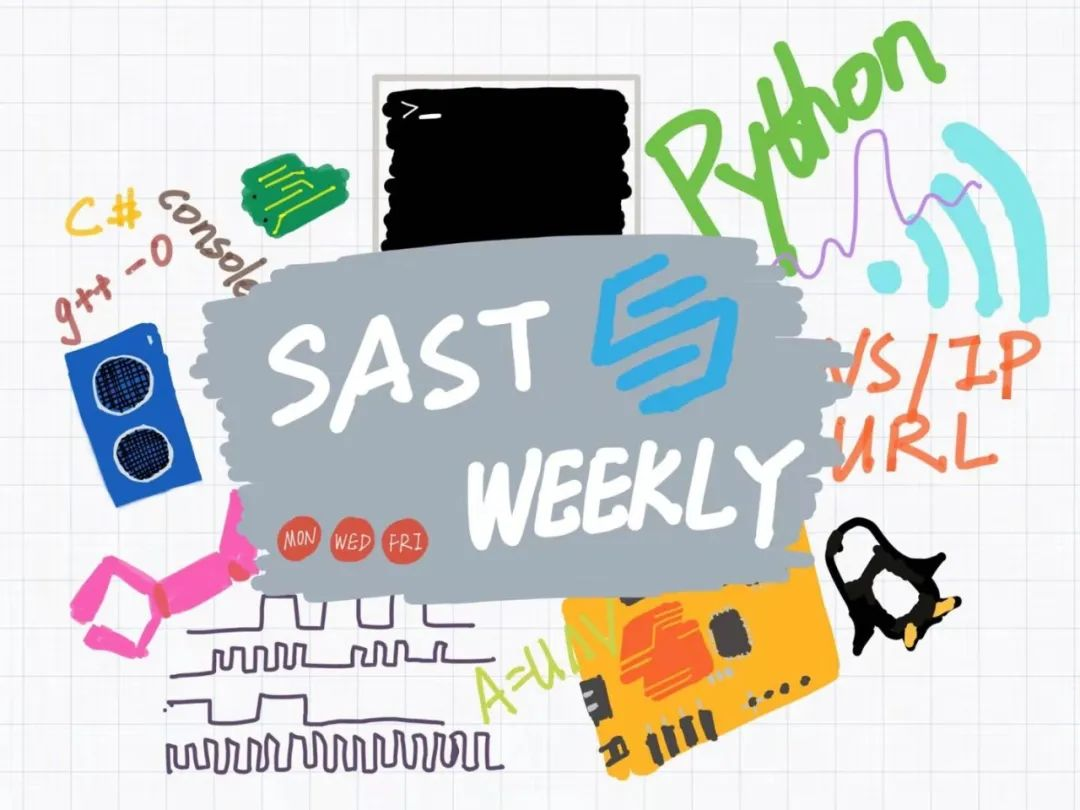 >_
Python
C#
console
g++ -O
SAST
WEEKLY
MON WED FRI
/IP
URL